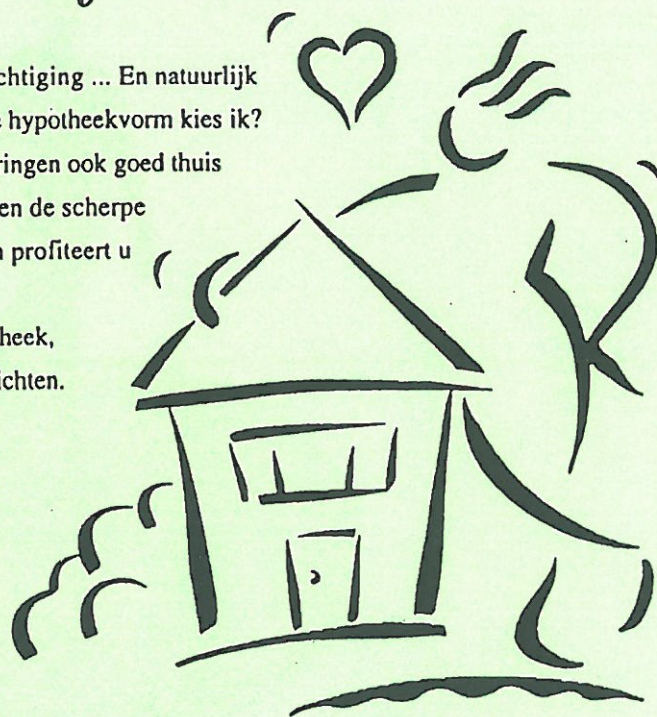 chtiging ... En natuurlijk
hypotheekvorm kies ik?
ringen ook goed thuis
en de scherpe
profiteert u
heek,
ichten.